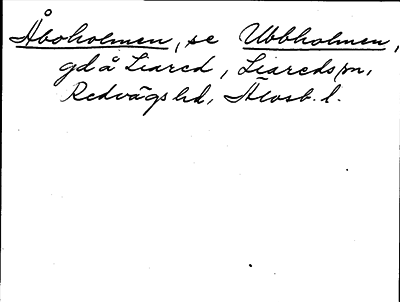 Åboholmen, se Ubbholmen,
gd å Liared, Liareds sn,
Redvägs hd, Älvsb. l.